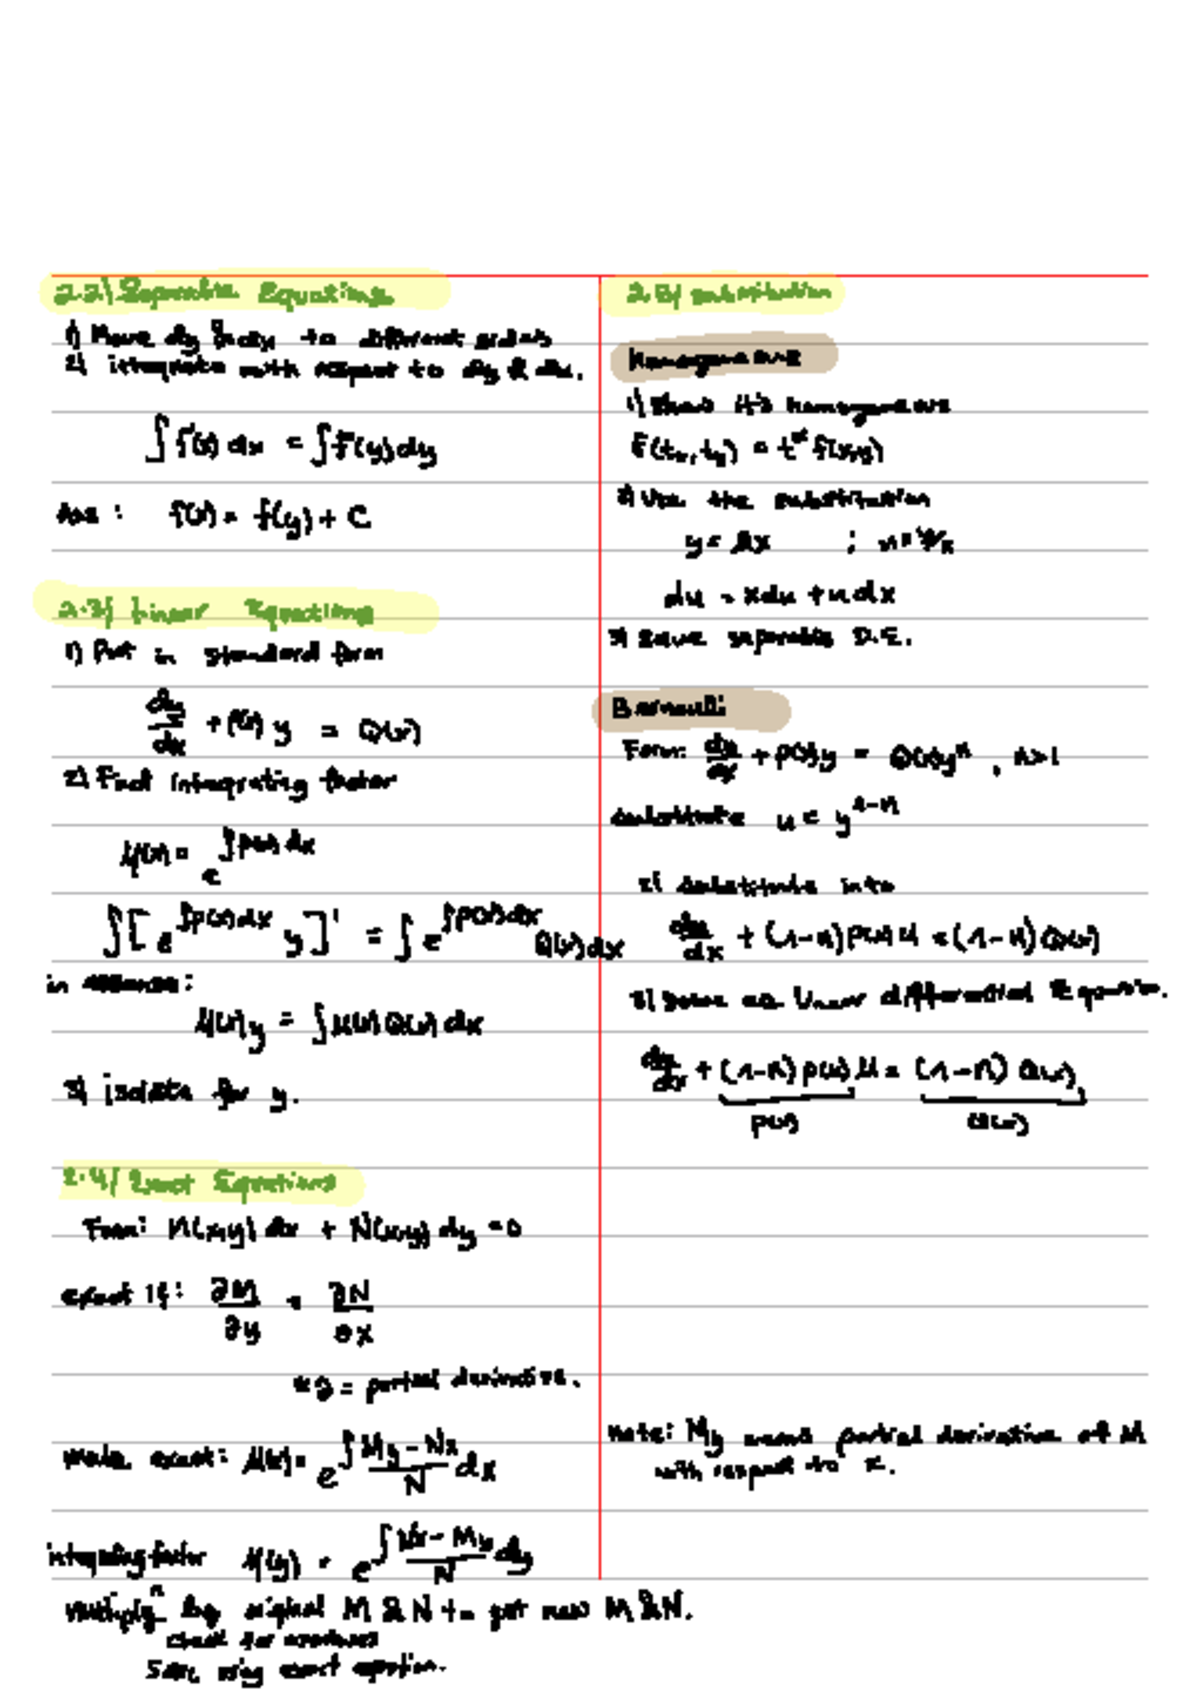 2.2) Separable Equations
1) Move dy & dx to different sides
2) integrate with respect to dy & dx.
∫ f(x) dx = ∫ f(y) dy
Ans : f(x) = f(y) + C
2.3) Linear Equations
1) Put in standard form
dy/dx + P(x) y = Q(x)
2) Find integrating factor
μ(x) = e^∫P(x) dx
∫[e^∫P(x)dx y]' = ∫ e^∫P(x)dx Q(x) dx
in :
μ(x) y = ∫ μ(x) Q(x) dx
3) isolate for y.
2.4) Exact Equations
Form: M(x,y) dx + N(x,y) dy = 0
exact if: ∂M/∂y = ∂N/∂x
* ∂ = partial derivative.
make exact: μ(x) = e^∫(My - Nx)/N dx
integrating factor μ(y) = e^∫(Nx - My)/N dy
multiply by original M & N to get new M & N.
check for exactness
Solve using exact equation.
2.5) substitution
Homogeneous
1) Show it's homogeneous
f(tx, ty) = t^α f(x,y)
2) Use the substitution
y = ux ; u = y/x
du = xdu + udx
3) Solve separable D.E.
Bernoulli
Form: dy/dx + P(x)y = Q(x)y^n , n>1
substitute u = y^1-n
2) substitute into
du/dx + (1-n) P(x) u = (1-n) Q(x)
3) Solve as Linear differential Equation.
+ (1-n) P(x) u = (1-n) Q(x)
P(x) Q(x)
note: My means partial derivative of M
with respect to x.